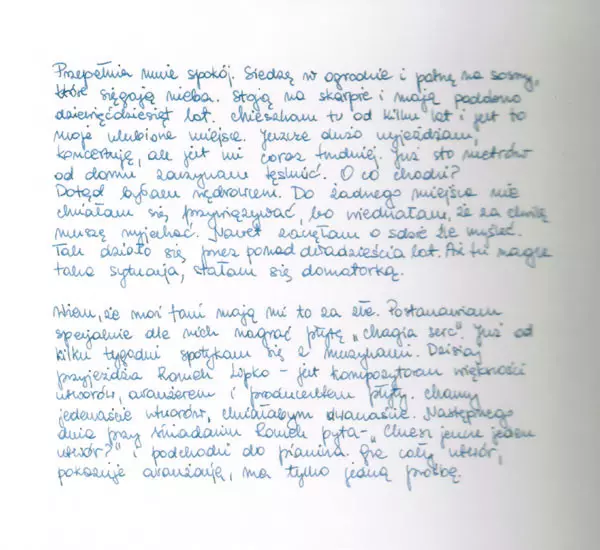 Przepełnia mnie spokój. Siedzę w ogrodzie i patrzę na sosny,
które sięgają nieba. Stoją na skarpie i mają podobno
dziewięćdziesiąt lat. Mieszkam tu od kilku lat i jest to
moje ulubione miejsce. Jeszcze dużo wyjeżdżam,
koncertuję, ale jest mi coraz trudniej. Już sto metrów
od domu zaczynam tęsknić. O co chodzi?
Dotąd byłam wędrowcem. Do żadnego miejsca nie
chciałam się przywiązywać, bo wiedziałam, że za chwilę
muszę wyjechać. Nawet zaczęłam o sobie źle myśleć.
Tak działo się przez ponad dwadzieścia lat. Aż tu nagle
taka sytuacja, stałam się domatorką.

Wiem, że moi fani mają mi to za złe. Postanawiam
specjalnie dla nich nagrać płytę „Magia serc". Już od
kilku tygodni spotykam się z muzykami. Dzisiaj
przyjeżdża Romek Lipko – jest kompozytorem większości
utworów, aranżerem i producentem płyty. Mamy
jedenaście utworów, chciałabym dwanaście. Następnego
dnia przy śniadaniu Romek pyta – „Chcesz jeszcze jeden
utwór?" i podchodzi do pianina. Gra cały utwór,
pokazuje aranżację, ma tylko jedną prośbę.